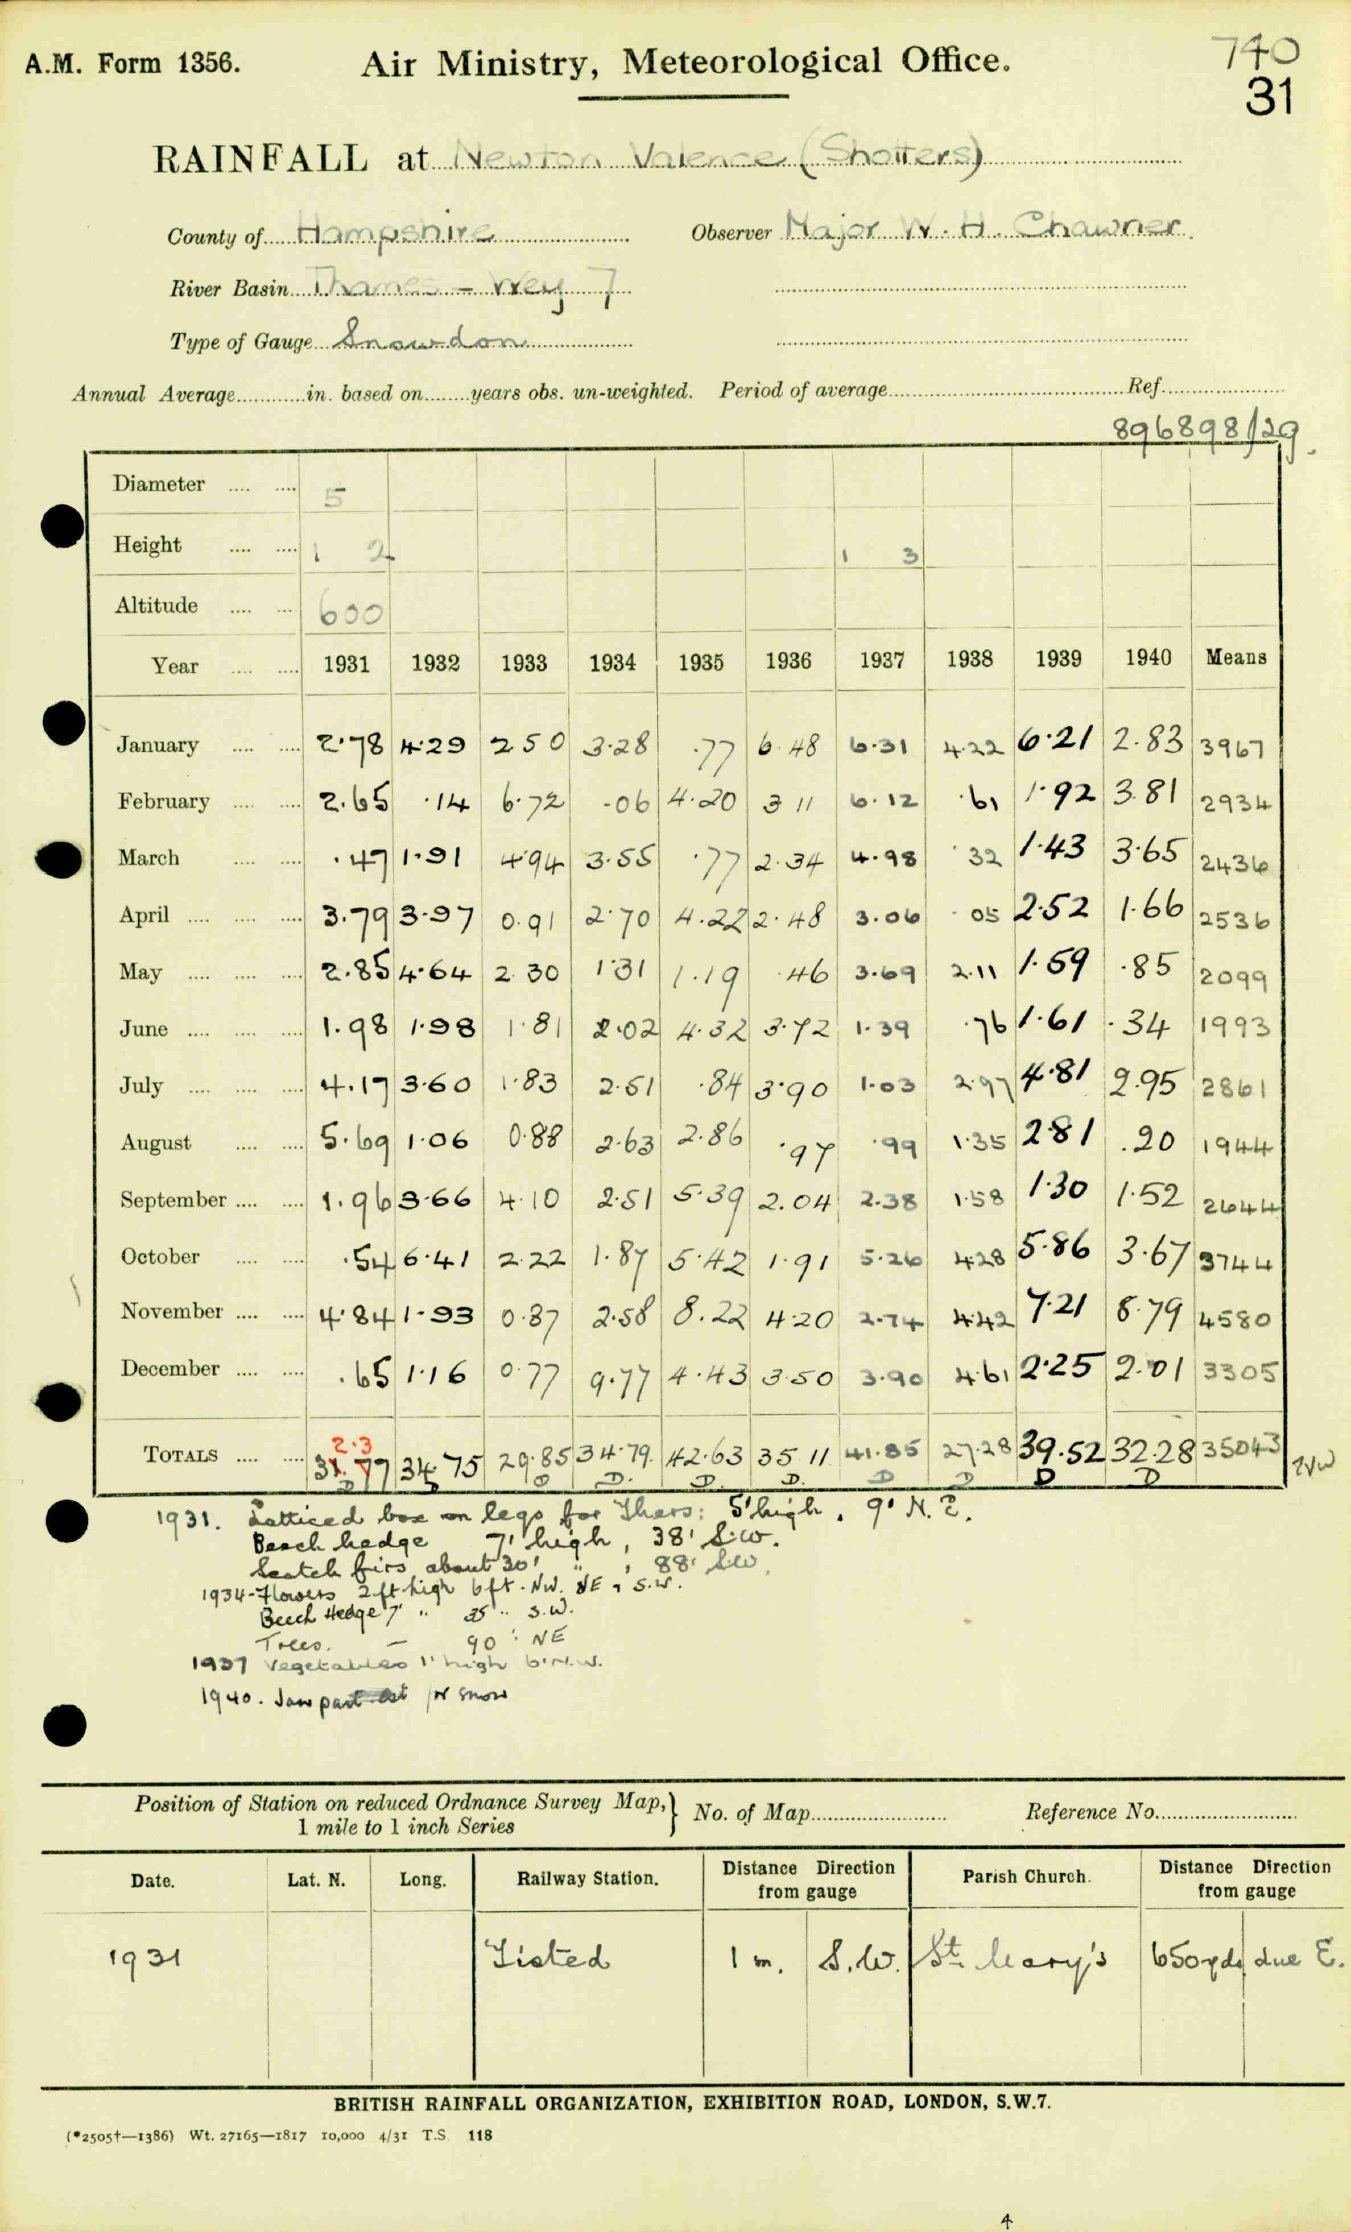 A.M. Form 1356.
Air Ministry, Meteorological Office.
740
31
RAINFALL at Newton Valence (Shotters)
County of Hampshire Observer Major W. H. Chawner.
River Basin Thames - Wey 7
Type of Gauge Snowdon
Annual Average in. based on years obs. un-weighted. Period of average Ref.
896898/29.
Diameter 5
Height 1 2 1 3
Altitude 600
Year 1931 1932 1933 1934 1935 1936 1937 1938 1939 1940 Means
January 2.78 4.29 2.50 3.28 .77 6.48 6.31 4.22 6.21 2.83 3967
February 2.65 .14 6.72 .06 4.20 3 11 6.12 .61 1.92 3.81 2934
March .47 1.91 4.94 3.55 .77 2.34 4.98 .32 1.43 3.65 2436
April 3.79 3.97 0.91 2.70 4.22 2.48 3.06 .05 2.52 1.66 2536
May 2.85 4.64 2.30 1.31 1.19 .46 3.69 2.11 1.59 .85 2099
June 1.98 1.98 1.81 2.02 4.32 3.72 1.39 .76 1.61 .34 1993
July 4.17 3.60 1.83 2.51 .84 3.90 1.03 2.97 4.81 2.95 2861
August 5.69 1.06 0.88 2.63 2.86 .97 .99 1.35 2.81 .20 1944
September 1.96 3.66 4.10 2.51 5.39 2.04 2.38 1.58 1.30 1.52 2644
October .54 6.41 2.22 1.87 5.42 1.91 5.26 4.28 5.86 3.67 3744
November 4.84 1.93 0.87 2.58 8.22 4.20 2.74 4.42 7.21 8.79 4580
December .65 1.16 0.77 9.77 4.43 3.50 3.90 4.61 2.25 2.01 3305
2.3
TOTALS 31.77 34.75 29.85 34.79 42.63 35.11 41.85 27.28 39.52 32.28 35043
D D D D. D. D. D D D D
1931. Latticed box on legs for Thers: 5' high, 9' N.E.
Beech hedge 7' high, 38' S.W.
Scotch firs about 30' " , 88' S.W.
1934-Flowers 2 ft high 6 ft. NW. NE & S.W.
Beech Hedge 7' " 35 " S.W.
Trees. — 90 ' NE
1937 Vegetables 1' high 6' N.W.
1940. Jan part for snow
Position of Station on reduced Ordnance Survey Map,
1 mile to 1 inch Series } No. of Map Reference No.
Date. Lat. N. Long. Railway Station. Distance Direction from gauge Parish Church. Distance Direction from gauge
1931 Tisted 1 m. S.W. St. Mary's 650 yds due E.
BRITISH RAINFALL ORGANIZATION, EXHIBITION ROAD, LONDON, S.W.7.
(*2505†—1386) Wt. 27165—1817 10,000 4/31 T.S 118
4